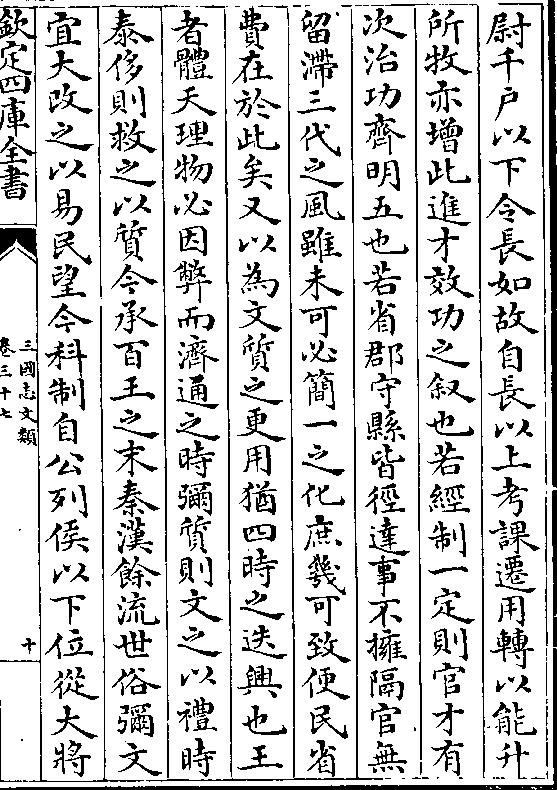 尉千戶以下令長如故自長以上考課遷用轉以能升
所牧亦增此進才效功之叙也若經制一定則官才有
次治功齊明五也若省郡守縣皆徑達事不擁隔官無
留滯三代之風雖未可必簡一之化庶幾可致便民省
費在於此矣又以為文質之更用猶四時之迭興也王
者體天理物必因弊而濟通之時彌質則文之以禮時
泰侈則救之以質今承百王之末秦漢餘流世俗彌文
宜大改之以易民望今科制自公列侯以下位從大將
欽定四庫全書
三國志文類
卷三十七
十